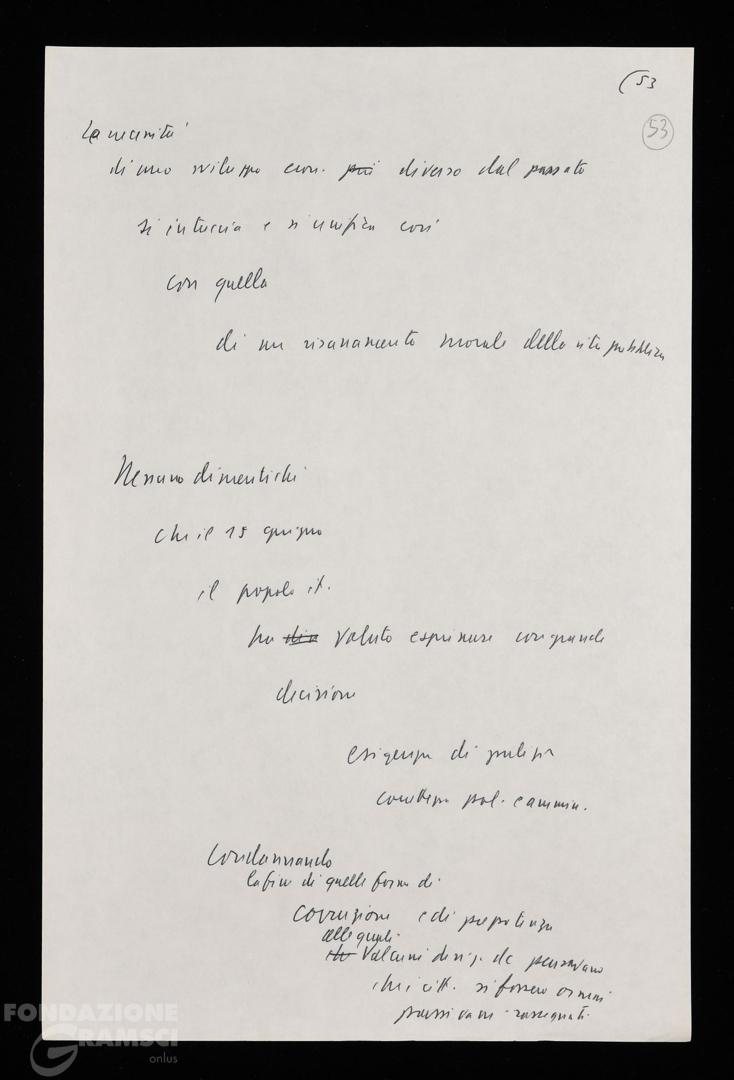 (53
53
La necessità
di uno sviluppo econ. più diverso dal passato
si intreccia e si unifica così
con quella
di un risanamento morale della vita pubblica
Nessuno dimentichi
che il 15 giugno
il popolo it.
ha voluto esprimere con grande
decisione
esigenza di pulizia
correttezza pol. e ammin.
Condannando
la fine di quelle forme di
corruzione e di prepotenza
alle quali
alcuni dirig. dc pensavano
che i citt. si fossero ormai
passivam. rassegnati.
FONDAZIONE
GRAMSCI
onlus